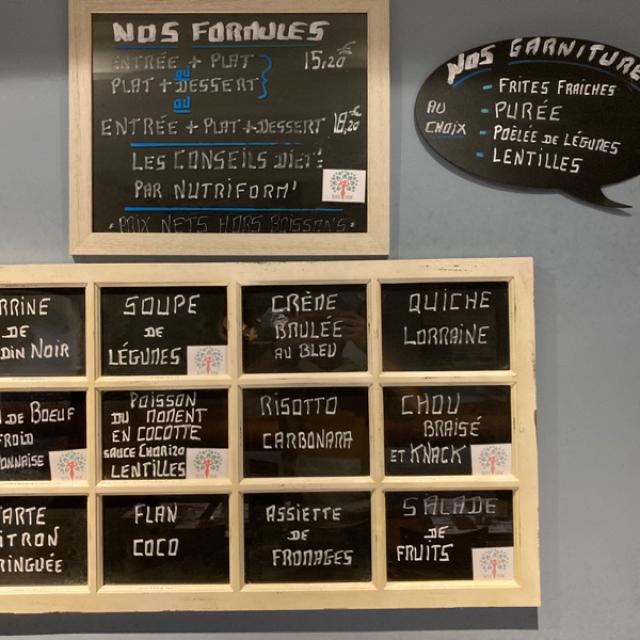 NOS FORMULES
ENTRÉE + PLAT 15,20€
ou
PLAT + DESSERT
ou
ENTRÉE + PLAT + DESSERT 18,20€
LES CONSEILS DIET'
PAR NUTRIFORM'
• PRIX NETS HORS BOISSONS •
NOS GARNITURE
AU CHOIX
- FRITES FRAICHES
- PURÉE
- POÊLÉE DE LÉGUMES
- LENTILLES
RRINE
DE
DIN NOIR
SOUPE
DE
LÉGUMES
CRÈME
BRULÉE
AU BLEU
QUICHE
LORRAINE
DE BOEUF
FROID
YONNAISE
POISSON
DU MOMENT
EN COCOTTE
SAUCE CHORIZO
LENTILLES
RISOTTO
CARBONARA
CHOU
BRAISÉ
ET KNACK
TARTE
CITRON
RINGUÉE
FLAN
COCO
ASSIETTE
DE
FROMAGES
SALADE
DE
FRUITS